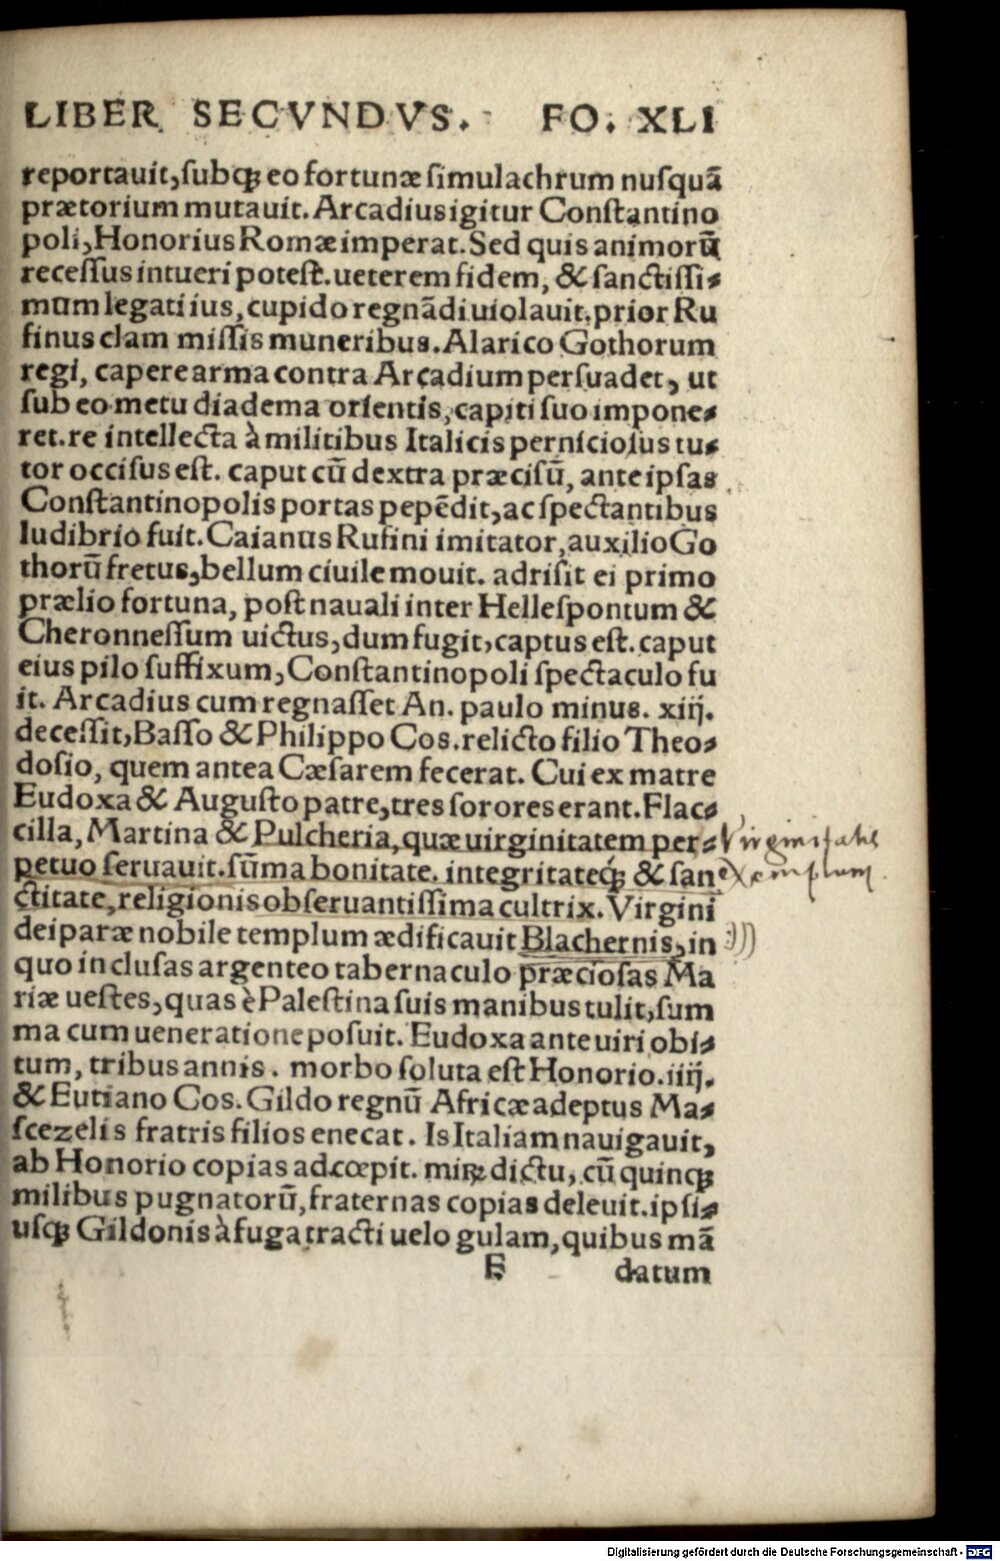 LIBER SECVNDVS. FO. XLI
reportauit, subqꝫ eo fortunæ simulachrum nusquã
prætorium mutauit. Arcadius igitur Constantino
poli, Honorius Romæ imperat. Sed quis animorũ
recessus intueri potest. ueterem fidem, & sanctissi⸗
mum legati ius, cupido regnãdi uiolauit. prior Ru
finus clam missis muneribus. Alarico Gothorum
regi, capere arma contra Arcadium persuadet, ut
sub eo metu diadema orientis, capiti suo impone⸗
ret. re intellecta à militibus Italicis perniciosus tu⸗
tor occisus est. caput cũ dextra præcisũ, ante ipsas
Constantinopolis portas pepẽdit, ac spectantibus
ludibrio fuit. Caianus Rufini imitator, auxilio Go
thorũ fretus, bellum ciuile mouit. adrisit ei primo
prælio fortuna, post nauali inter Hellespontum &
Cheronnessum uictus, dum fugit, captus est. caput
eius pilo suffixum, Constantinopoli spectaculo fu
it. Arcadius cum regnasset An. paulo minus. xiij.
decessit, Basso & Philippo Cos. relicto filio Theo⸗
dosio, quem antea Cæsarem fecerat. Cui ex matre
Eudoxa & Augusto patre, tres sorores erant. Flac⸗
cilla, Martina & Pulcheria, quæ uirginitatem per⸗ Virginitatis
petuo seruauit. sũma bonitate. integritateqꝫ́ & san exemplum.
ctitate, religionis obseruantissima cultrix. Virgini
deiparæ nobile templum ædificauit Blachernis, in
quo inclusas argenteo tabernaculo præciosas Ma
riæ uestes, quas è Palestina suis manibus tulit, sum
ma cum ueneratione posuit. Eudoxa ante uiri obi⸗
tum, tribus annis. morbo soluta est Honorio. iiij.
& Eutiano Cos. Gildo regnũ Africæ adeptus Ma⸗
scezelis fratris filios enecat. Is Italiam nauigauit,
ab Honorio copias adcœpit. miꝝ dictu, cũ quinqꝫ
milibus pugnatorũ, fraternas copias deleuit. ipsi⸗
usqꝫ Gildonis à fuga tracti uelo gulam, quibus mã
F datum
Digitalisierung gefördert durch die Deutsche Forschungsgemeinschaft - DFG